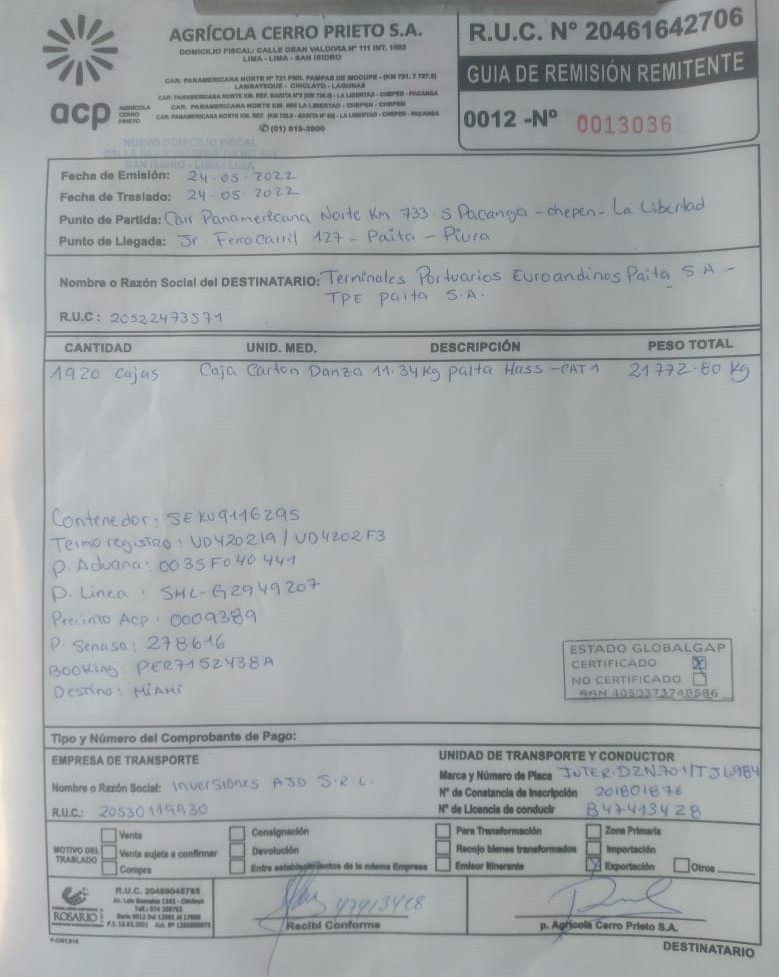 AGRÍCOLA CERRO PRIETO S.A.
DOMICILIO FISCAL: CALLE DEAN VALDIVIA Nº 111 INT. 1002
LIMA - LIMA - SAN ISIDRO
CAR. PANAMERICANA NORTE Nº 731 FND. PAMPAS DE MOCUPE - (KM 731. 7 737.5)
LAMBAYEQUE - CHICLAYO - LAGUNAS
(01) 619-3900
acp AGRÍCOLA CERRO PRIETO
R.U.C. Nº 20461642706
GUIA DE REMISIÓN REMITENTE
0012 -Nº 0013036
NUEVO DOMICILIO FISCAL
SAN ISIDRO - LIMA - LIMA
Fecha de Emisión: 24-05-2022
Fecha de Traslado: 24-05-2022
Punto de Partida: Carr Panamericana Norte Km 733.5 Pacanga - chepen - La Libertad
Punto de Llegada: Jr. Ferrocarril 127 - Paita - Piura
Nombre o Razón Social del DESTINATARIO: Terminales Portuarios Euroandinos Paita S.A -
TPE paita S.A.
R.U.C: 20522473571
CANTIDAD UNID. MED. DESCRIPCIÓN PESO TOTAL
1920 Cajas Caja Carton Danza 11.34Kg palta Hass -CAT1 21772.80 Kg
Contenedor: SEKU9116295
Termoregistro: UD420219 / UD4202F3
P. Aduana: 0035F040441
P. Linea: SHL-G2949207
Precinto Acp: 0009389
P. Senasa: 278616
BOOKing: PER7152438A
Destino: MiAMi
ESTADO GLOBALGAP
CERTIFICADO
NO CERTIFICADO
GGN 4050373748586
Tipo y Número del Comprobante de Pago:
EMPRESA DE TRANSPORTE
Nombre o Razón Social: Inversiones AJD S.R.L.
R.U.C.: 20530119930
UNIDAD DE TRANSPORTE Y CONDUCTOR
Marca y Número de Placa INTER.DZN701/TJL984
Nº de Constancia de Inscripción 201801876
Nº de Licencia de conducir B47413428
MOTIVO DEL TRASLADO
Venta
Venta sujeta a confirmar
Compra
Consignación
Devolución
Entre establecimientos de la misma Empresa
Para Transformación
Recojo bienes transformados
Emisor Itinerante
Zona Primaria
Importación
Exportación
Otros
ROSARIO
R.U.C. 20488045785
47413428
Recibí Conforme
p. Agrícola Cerro Prieto S.A.
DESTINATARIO